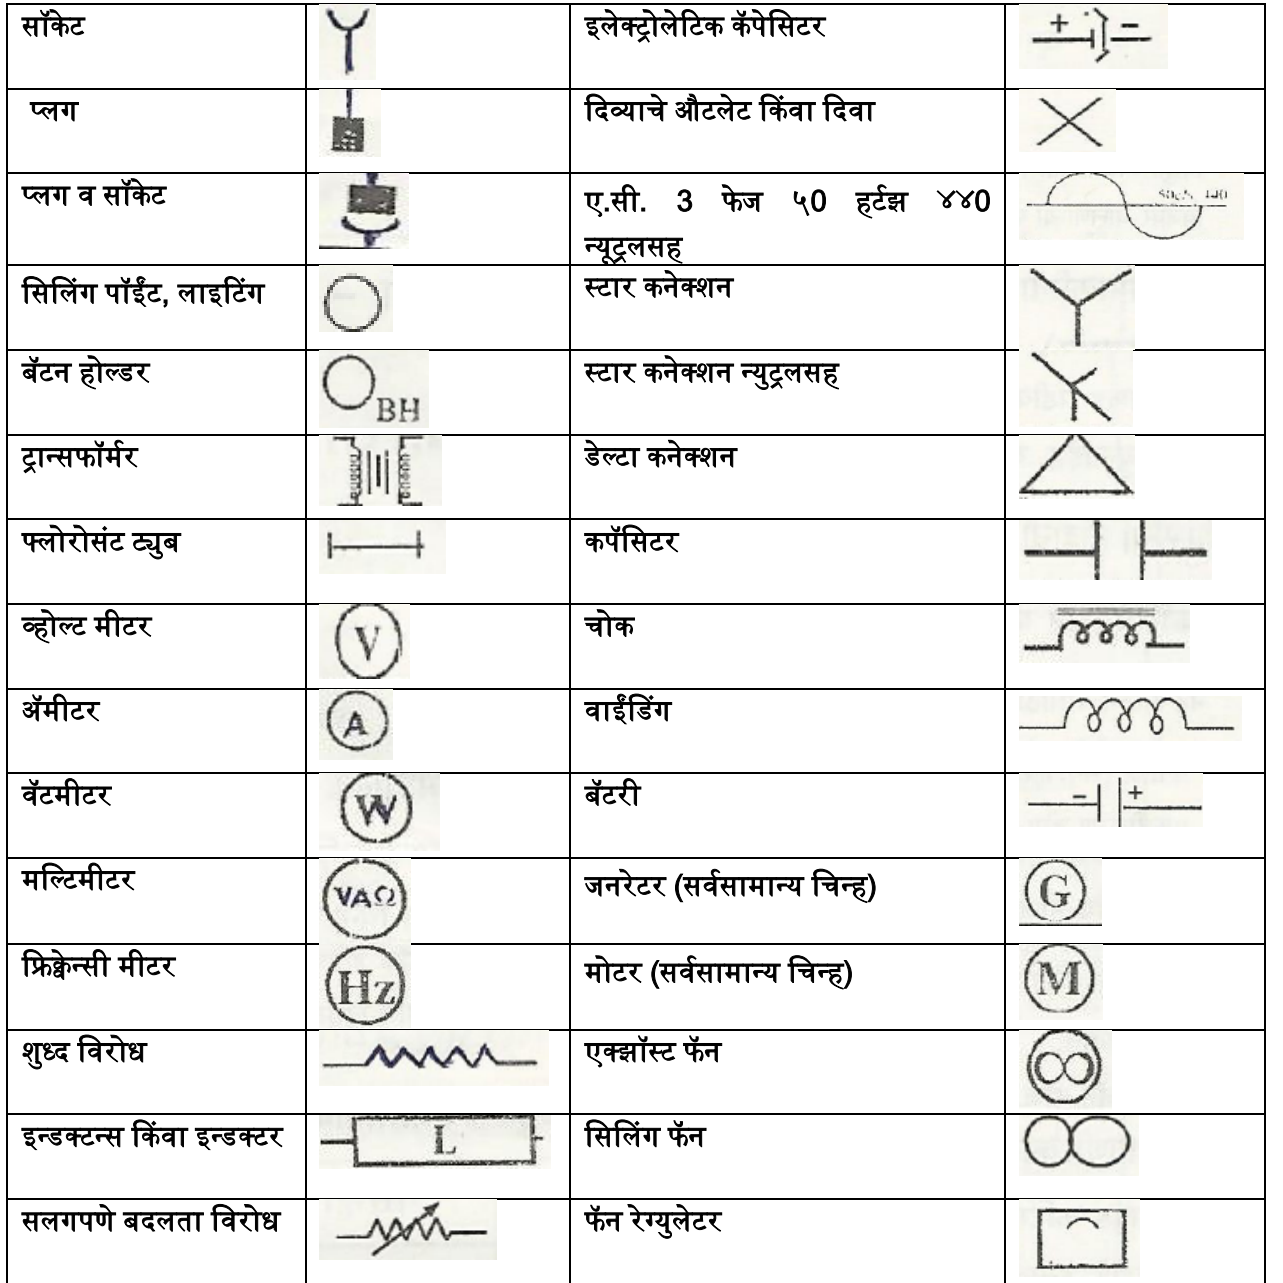 सॉकेट
इलेक्ट्रोलेटिक कॅपेसिटर
+ −
प्लग
दिव्याचे औटलेट किंवा दिवा
प्लग व सॉकेट
ए.सी. 3 फेज ५0 हर्टझ ४४0
न्यूट्रलसह
सिलिंग पॉईंट, लाइटिंग
स्टार कनेक्शन
बॅटन होल्डर
BH
स्टार कनेक्शन न्युट्रलसह
ट्रान्सफॉर्मर
डेल्टा कनेक्शन
फ्लोरोसंट ट्युब
कपॅसिटर
व्होल्ट मीटर
V
चोक
ॲमीटर
A
वाईंडिंग
वॅटमीटर
W
बॅटरी
− +
मल्टिमीटर
VAΩ
जनरेटर (सर्वसामान्य चिन्ह)
G
फ्रिक्वेन्सी मीटर
Hz
मोटर (सर्वसामान्य चिन्ह)
M
शुध्द विरोध
एक्झॉस्ट फॅन
इन्डक्टन्स किंवा इन्डक्टर
L
सिलिंग फॅन
सलगपणे बदलता विरोध
फॅन रेग्युलेटर